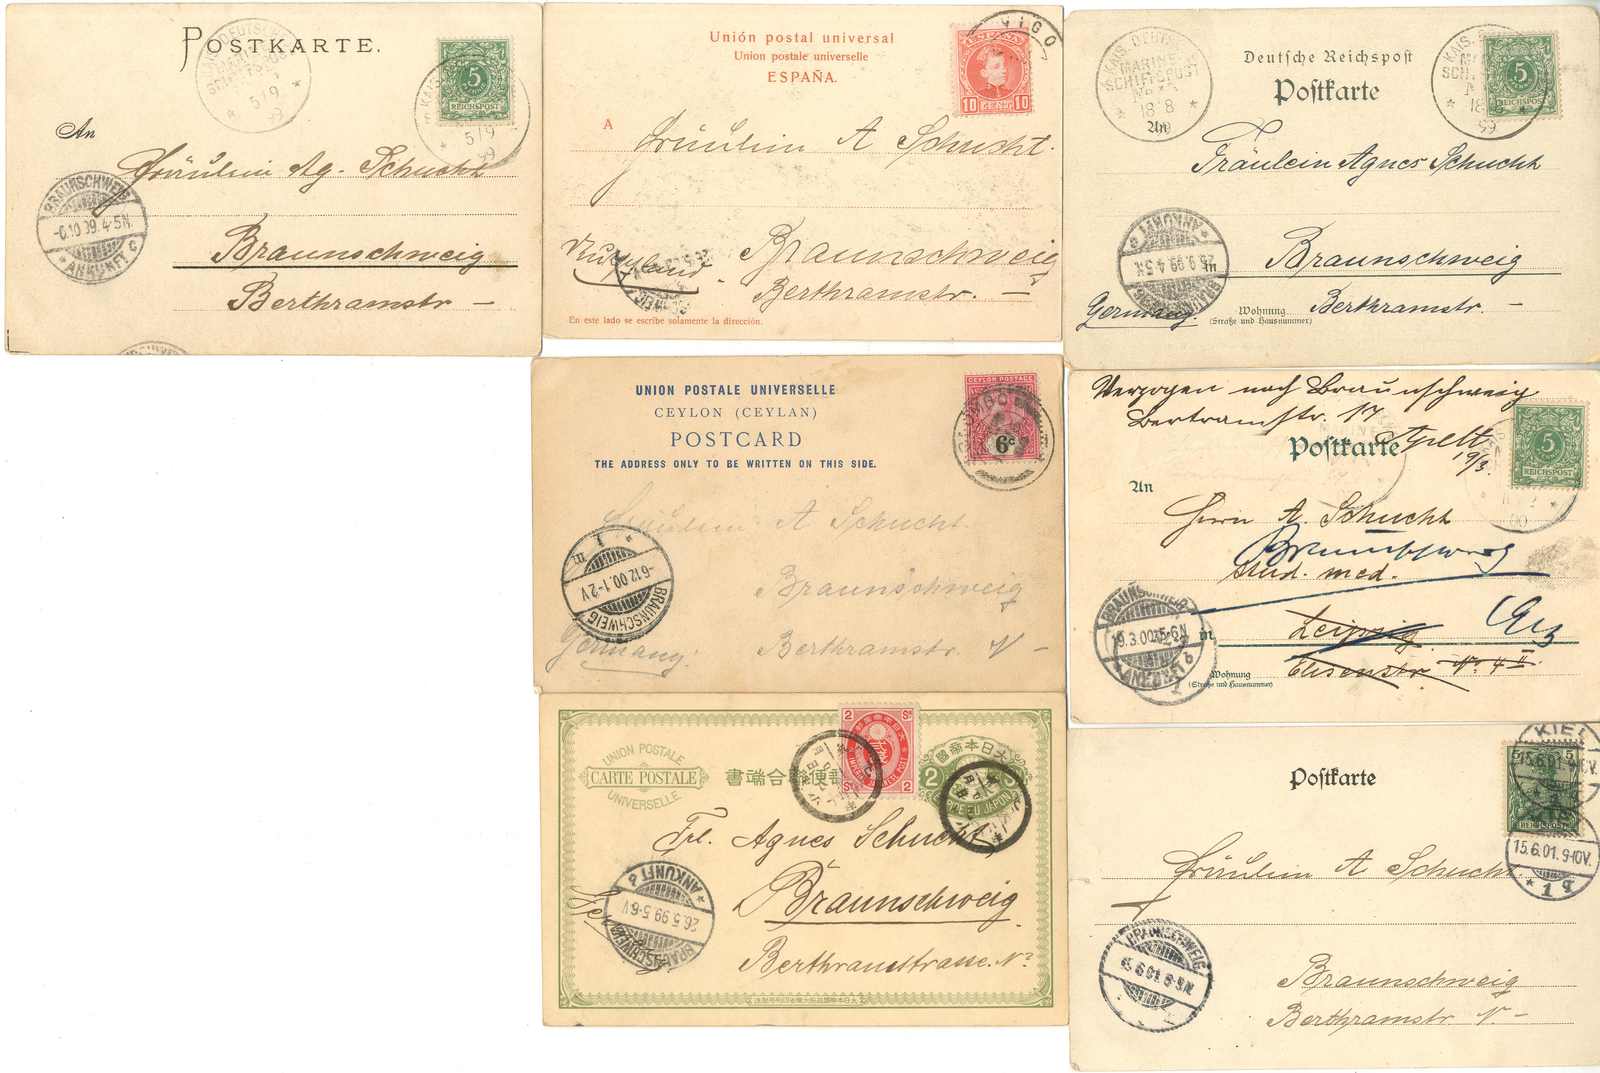 POSTKARTE.
5
REICHSPOST
5/9
99
An
Fräulein Ag. Schucht
BRAUNSCHWEIG
-6.10.99.4-5N.
* ANKUNFT C
Braunschweig
Berthramstr —
Unión postal universal
Union postale universelle
ESPAÑA.
VIGO
ESPAÑA
10 10
A
Fräulein A Schucht.
Braunschweig
Berthramstr. —
En este lado se escribe solamente la dirección.
Deutsche Reichspost
Postkarte
KAIS. DEUTSCHE
MARINE-
SCHIFFSPOST
* 18 8 *
99
5
REICHSPOST
An
Fräulein Agnes Schucht
ANKUNFT
25.9.99.4-5N.
in Braunschweig
Germany.
Wohnung
(Straße und Hausnummer)
Berthramstr. —
UNION POSTALE UNIVERSELLE
CEYLON (CEYLAN)
POSTCARD
THE ADDRESS ONLY TO BE WRITTEN ON THIS SIDE.
CEYLON POSTAGE
6c
COLOMBO
Fräulein A Schucht.
-6.12.00.1-2V
BRAUNSCHWEIG
Braunschweig
Germany.
Berthramstr. N —
Verzogen nach Braunschweig
Bertramstr. 17
19/3.
Postkarte
5
REICHSPOST
An
Herrn A. Schucht
stud. med.
BRAUNSCHWEIG
19.3.00.5-6N
in Leipzig
Wohnung
(Straße und Hausnummer)
Elisenstr No 4 II.
UNION POSTALE
CARTE POSTALE
UNIVERSELLE
大日本帝國
2 Sn
IMPERIAL JAPANESE POST
Sn 2
Frl. Agnes Schucht,
ANKUNFT
26.5.99.5-6V
Braunschweig
Berthramstrasse. No
Postkarte
KIEL
15.6.01.9-10V.
* 1 q
REICHSPOST
Fräulein A Schucht.
BRAUNSCHWEIG
Braunschweig
Berthramstr N —